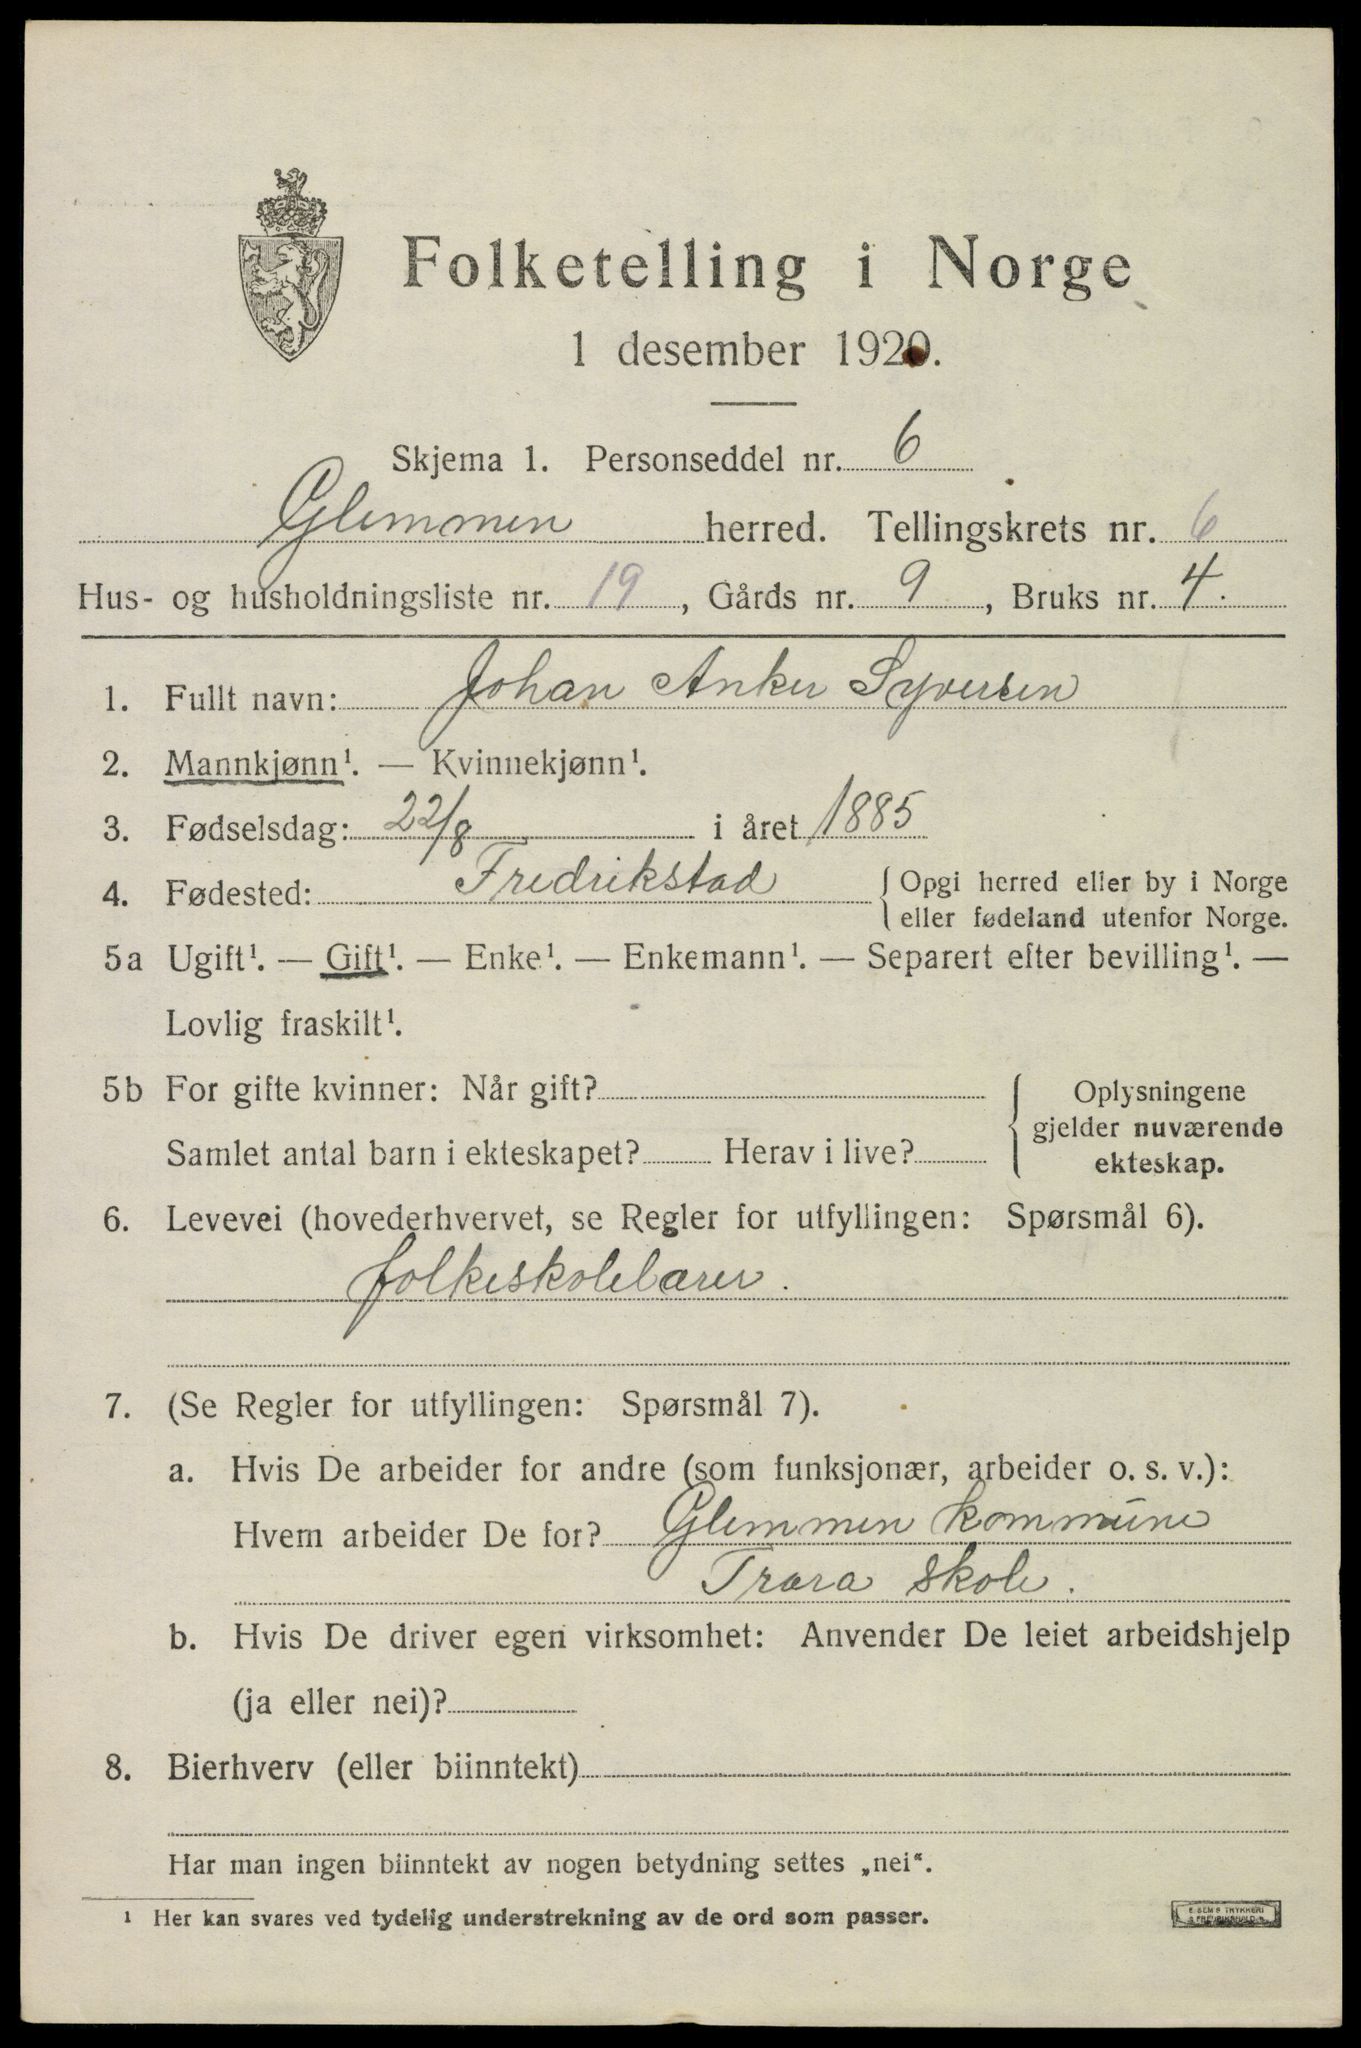 Folketelling i Norge
1 desember 1920.
Skjema 1. Personseddel nr. 6
Glemmen herred. Tellingskrets nr. 6
Hus- og husholdningsliste nr. 19, Gårds nr. 9, Bruks nr. 4.
1. Fullt navn: Johan Anker Syversen
2. Mannkjønn¹. — Kvinnekjønn¹.
3. Fødselsdag: 22/8 i året 1885
4. Fødested: Fredrikstad { Opgi herred eller by i Norge
eller fødeland utenfor Norge.
5a Ugift¹. — Gift¹. — Enke¹. — Enkemann¹. — Separert efter bevilling¹. —
Lovlig fraskilt¹.
5b For gifte kvinner: Når gift? { Oplysningene
gjelder nuværende
Samlet antal barn i ekteskapet? Herav i live? ekteskap.
6. Levevei (hovederhvervet, se Regler for utfyllingen: Spørsmål 6).
folkeskolelærer.
7. (Se Regler for utfyllingen: Spørsmål 7).
a. Hvis De arbeider for andre (som funksjonær, arbeider o. s. v.):
Hvem arbeider De for? Glemmen kommune
Trara skole.
b. Hvis De driver egen virksomhet: Anvender De leiet arbeidshjelp
(ja eller nei)?
8. Bierhverv (eller biinntekt)
Har man ingen biinntekt av nogen betydning settes „nei“.
¹ Her kan svares ved tydelig understrekning av de ord som passer.
E. SEM'S TRYKKERI